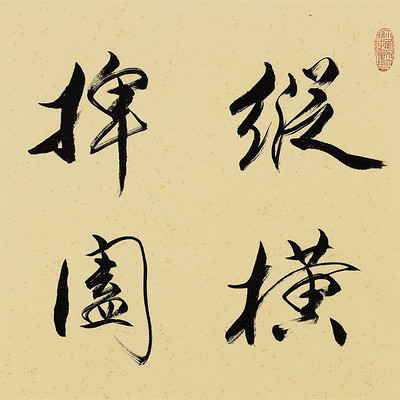 縱橫
捭闔